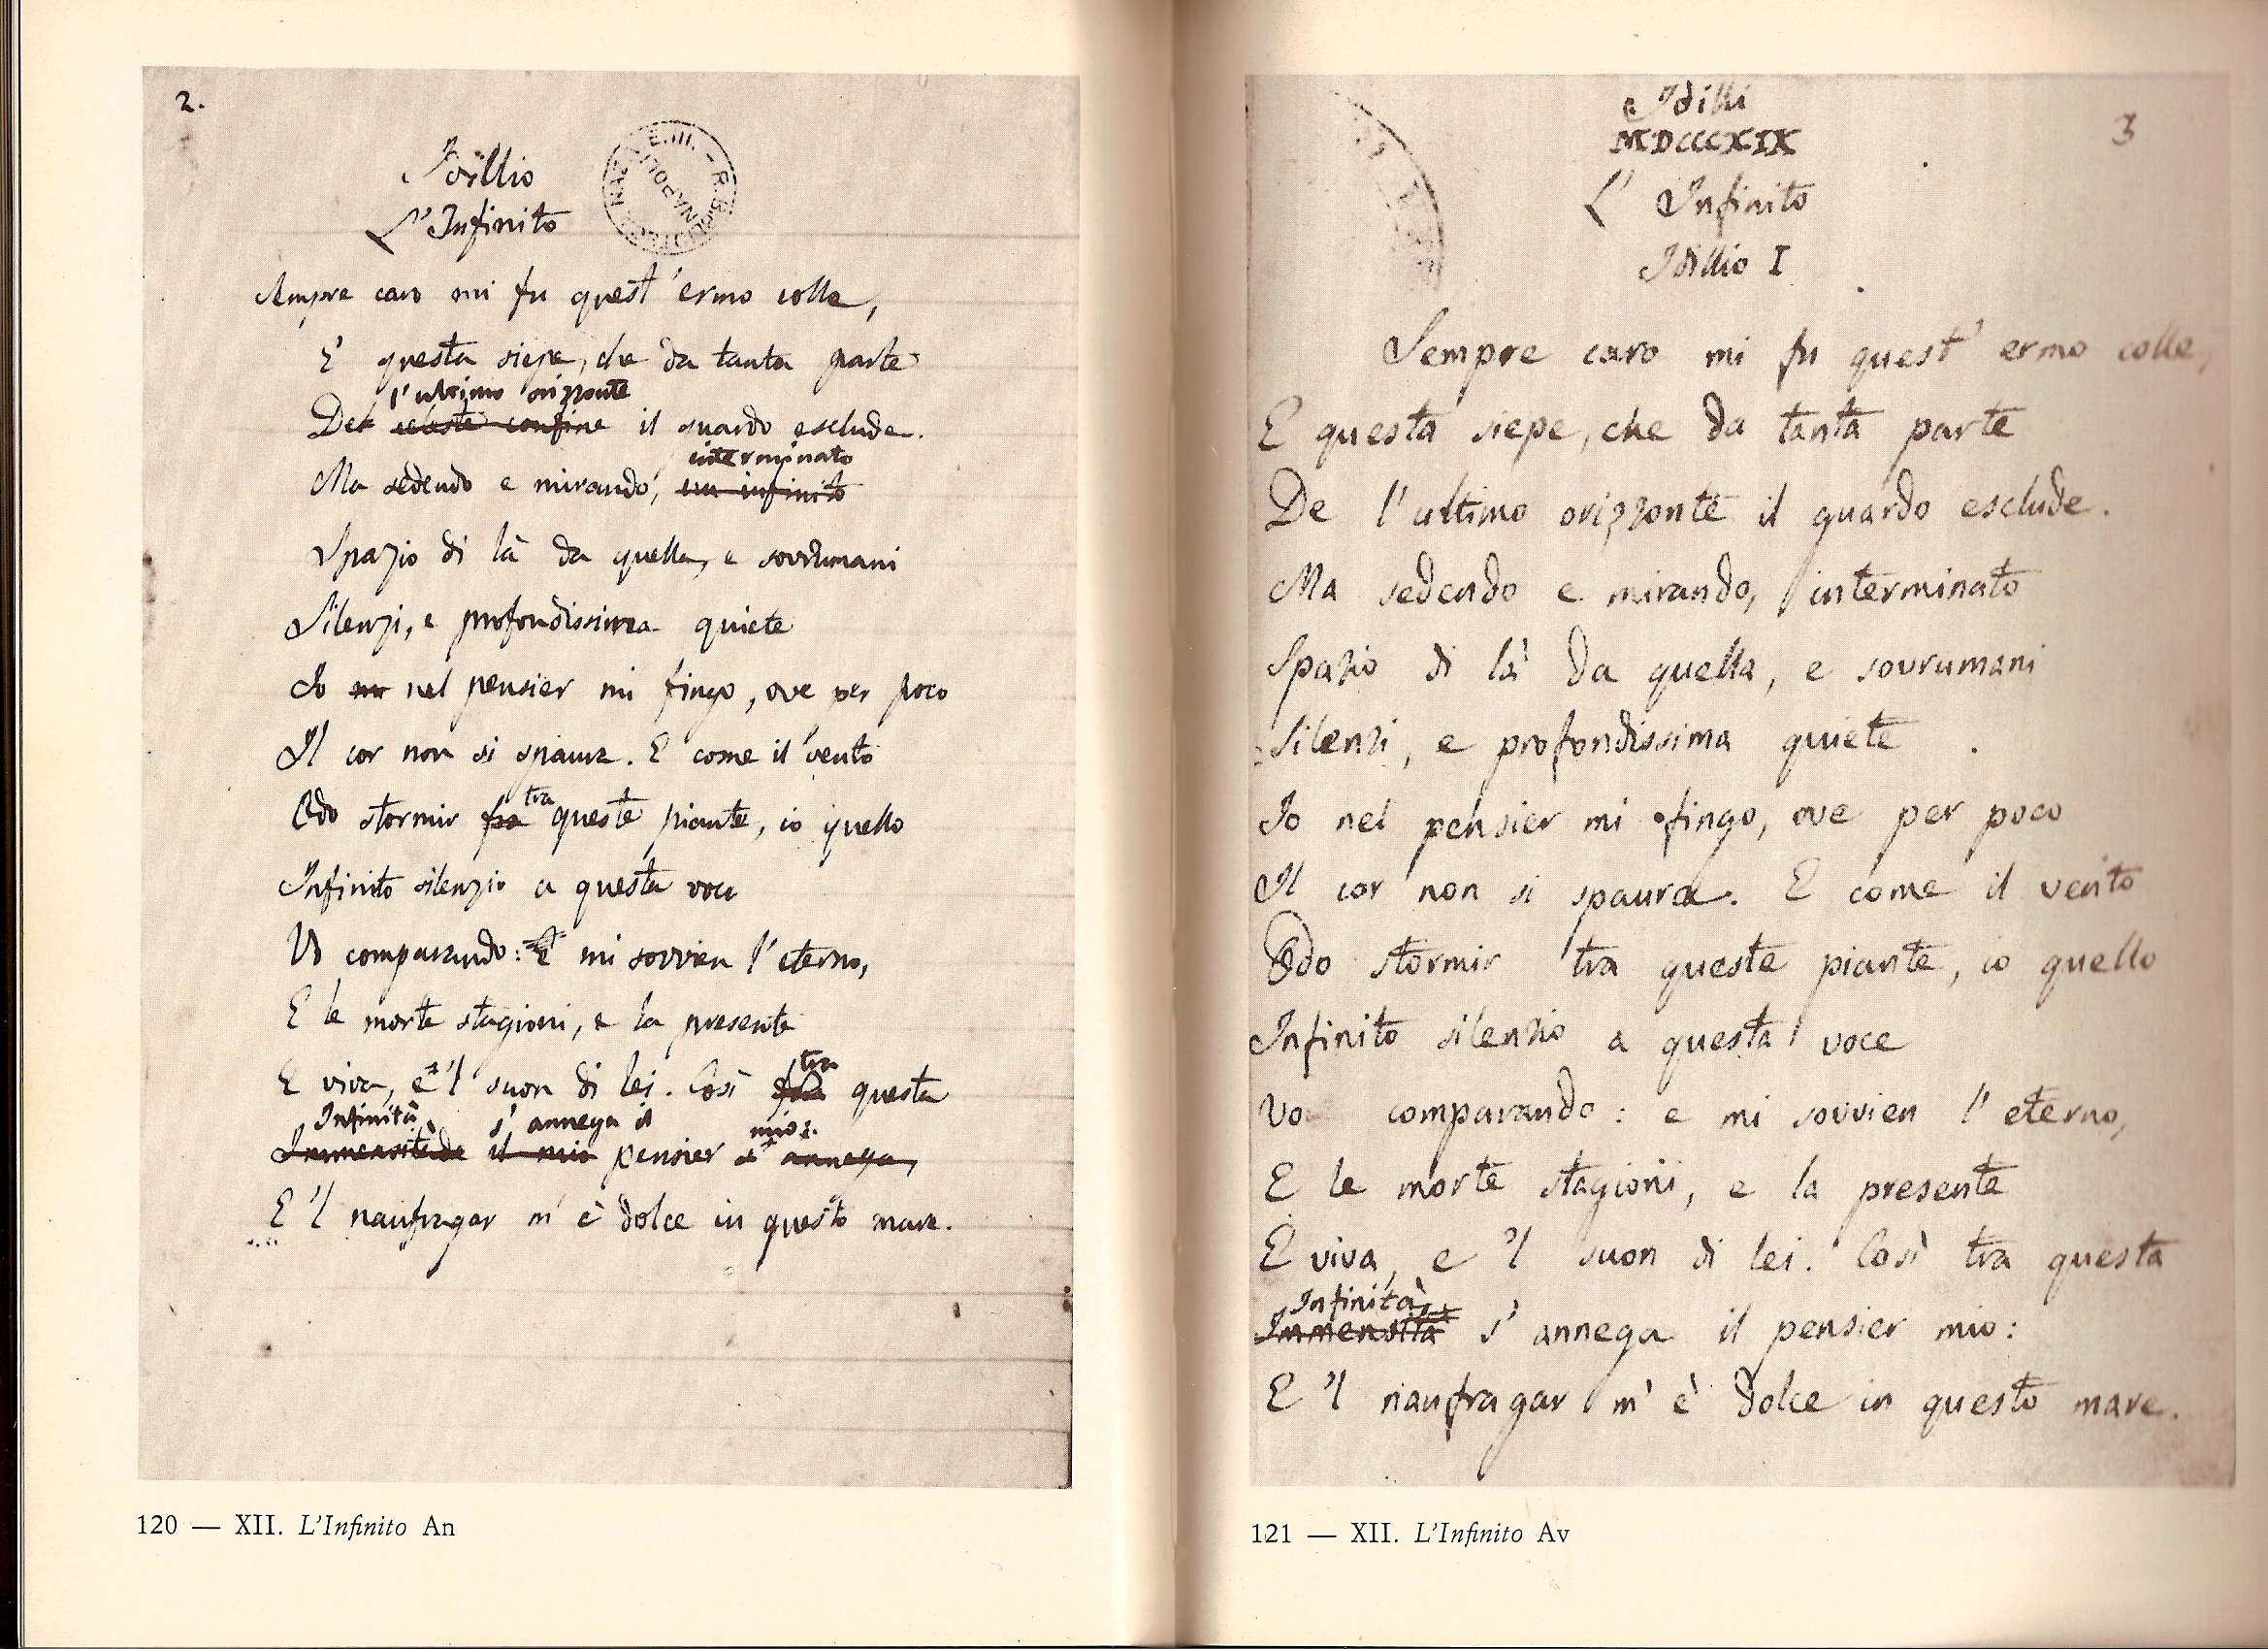 2.
Idillio
L'Infinito
Sempre caro mi fu quest'ermo colle,
E questa siepe, che da tanta parte
l'ultimo orizzonte
Del celeste confine il guardo esclude.
interminato
Ma sedendo e mirando, un infinito
Spazio di là da quella, e sovrumani
Silenzi, e profondissima quiete
Io nel pensier mi fingo, ove per poco
Il cor non si spaura. E come il vento
tra
Odo stormir fra queste piante, io quello
Infinito silenzio a questa voce
Vo comparando: E mi sovvien l'eterno,
E le morte stagioni, e la presente
tra
E viva, e 'l suon di lei. Così fra questa
Infinità s'annega il mio:
Immensitade il mio pensier s'annega,
E 'l naufragar m'è dolce in questo mare.
120 — XII. L'Infinito An
3
Idilli
MDCCCXIX
L' Infinito
Idillio I
Sempre caro mi fu quest' ermo colle,
E questa siepe, che da tanta parte
De l'ultimo orizzonte il guardo esclude.
Ma sedendo e mirando, interminato
Spazio di là da quella, e sovrumani
Silenzi, e profondissima quiete
Io nel pensier mi fingo, ove per poco
Il cor non si spaura. E come il vento
Odo stormir tra queste piante, io quello
Infinito silenzio a questa voce
Vo comparando: e mi sovvien l'eterno,
E le morte stagioni, e la presente
E viva, e 'l suon di lei. Così tra questa
Infinità
Immensità s'annega il pensier mio:
E 'l naufragar m'è dolce in questo mare.
121 — XII. L'Infinito Av